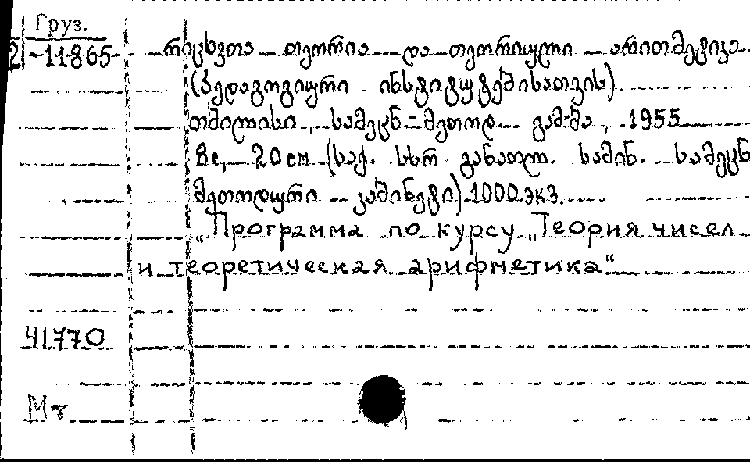 Груз.
2-11865
რიცხვთა თეორია და თეორიული არითმეტიკა
(პედაგოგიური ინსტიტუტებისათვის)
თბილისი, სამეცნ.-მეთოდ. გამ-ბა, 1955
8с, 20 см (საქ. სსრ განათლ. სამინ. სამეცნ
მეთოდური კაბინეტი) 1000 экз
„Программа по курсу „Теория чисел
и теоретическая арифметика“
41770
Мт